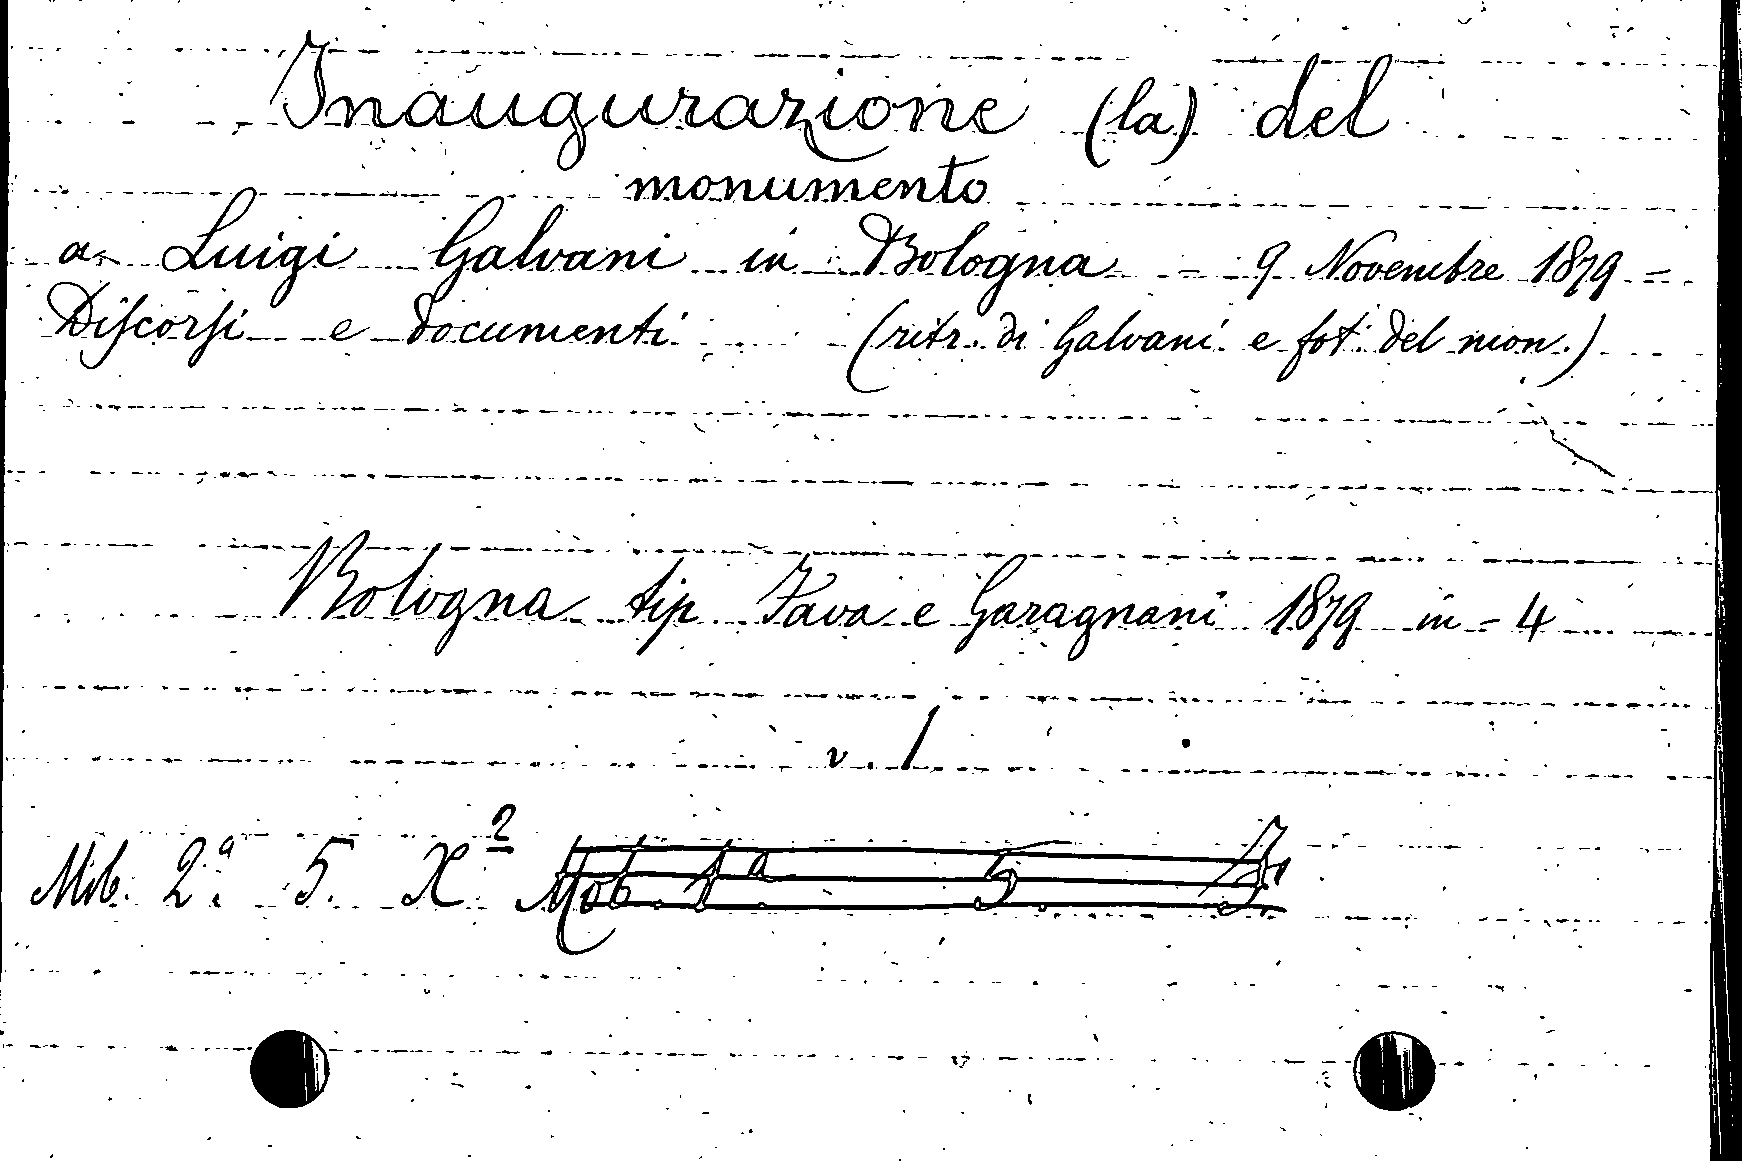 Inaugurazione (la) del
monumento
a Luigi Galvani in Bologna - 9 Novembre 1879 =
Discorsi e documenti (ritr. di Galvani e fot. del mon.)
Bologna tip Fava e Garagnani 1879 in - 4
v. 1
Mib. 2ª. 5. X² Mob. 1ª. 5. 7.